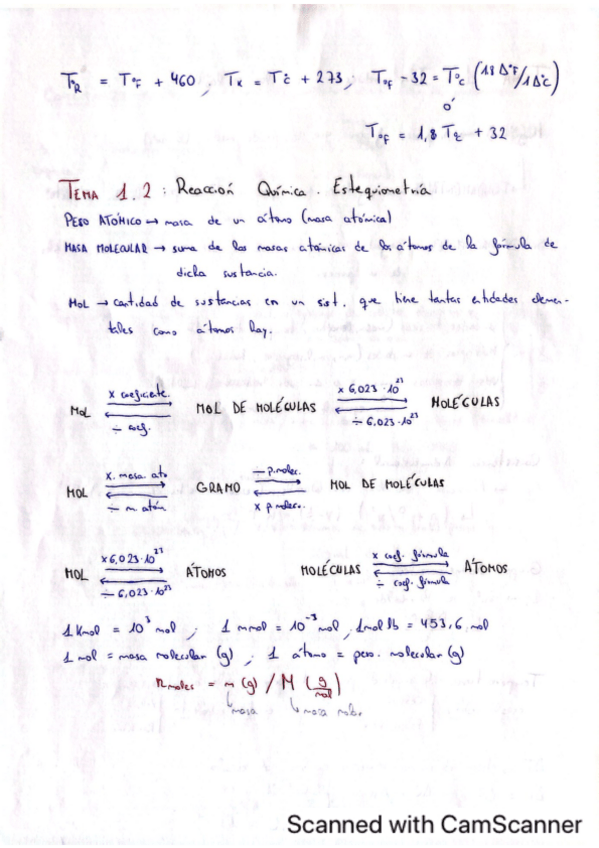 T°R = T°F + 460 ; TK = T°C + 273 ; T°F - 32 = T°C (1,8 Δ°F/1Δ°C)
ó
T°F = 1,8 T°C + 32
TEMA 1.2 : Reacción Química. Estequiometría
PESO ATÓMICO → masa de un átomo (masa atómica)
MASA MOLECULAR → suma de las masas atómicas de los átomos de la fórmula de
dicha sustancia.
MOL → cantidad de sustancias en un sist. que tiene tantas entidades elemen-
tales como átomos hay.
x coeficiente.
x 6,023·10²³
MOL ⇄ MOL DE MOLÉCULAS ⇄ MOLÉCULAS
÷ coef.
÷ 6,023·10²³
x. masa. ato
÷ p.molec.
MOL ⇄ GRAMO ⇄ MOL DE MOLÉCULAS
÷ m. atóm
x p.molec.
x 6,023·10²³
x coef. fórmula
MOL ⇄ ÁTOMOS MOLÉCULAS ⇄ ÁTOMOS
÷ 6,023·10²³
÷ coef. fórmula
1 Kmol = 10³ mol ; 1 mmol = 10⁻³ mol , 1 mol lb = 453,6 mol
1 mol = masa molecular (g) ; 1 átomo = peso. molecular (g)
n moles = m (g) / M (g/mol)
↳ masa ↳ masa mol.
Scanned with CamScanner